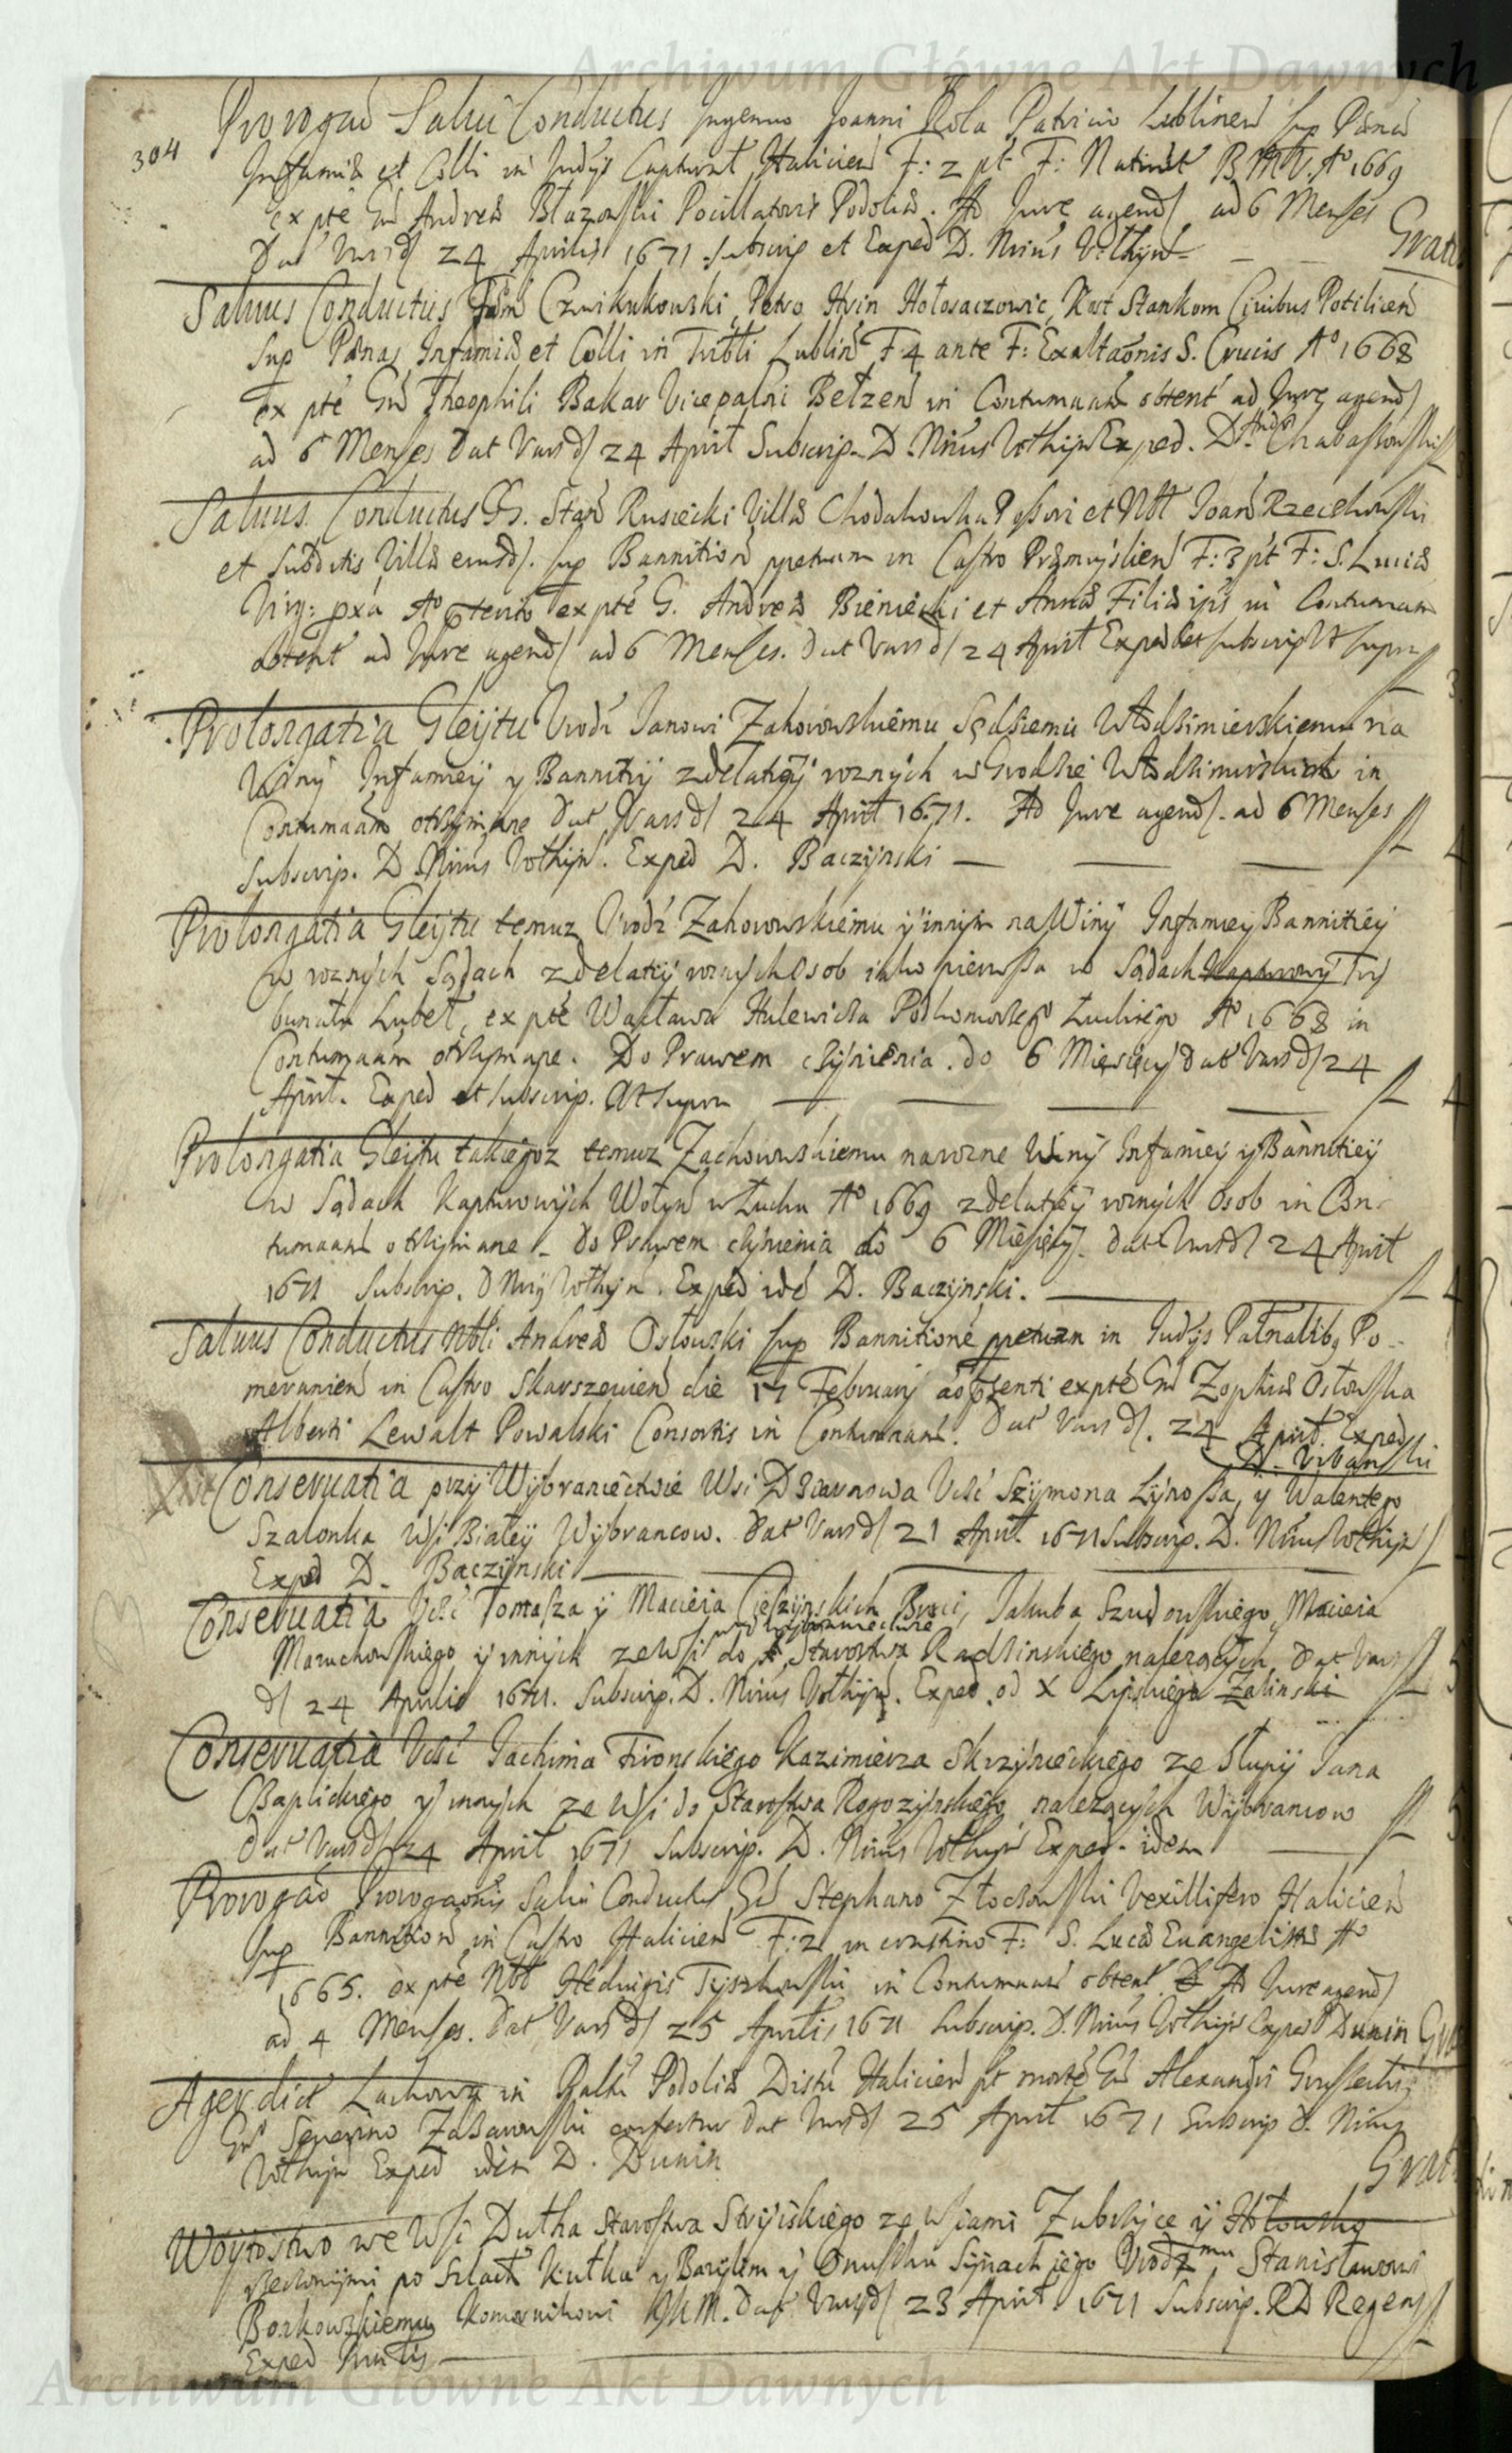 Archiwum Główne Akt Dawnych
304
Prorogaō Salui Conductus Ingenuo Joanni Rola Patricio Lublinen sup Pœnas
Infamiæ et Colli in Judys Capturał Halicien F: 2 pt F: Natiuit B M V. Aº 1669
ex pte Gñ Andreæ Błazowski Pocillatoris Podoliæ. Ad Jure agend ad 6 Menses
Dat Vars 24 Aprilis 1671 Subscrip et Exped D. Nrius Vothijn Grat
Saluus Conductus Fam Czwikukowski, Petro Hrin Hołosaczowic, Kost Stankom Ciuibus Potilicen
Sup Pænas Infamiæ et Colli in Tribłi Lublin F 4 ante F: Exaltaōnis S. Crucis Aº 1668
ex pte Gñ Theophili Bakar Vicepalni Bełzen in Contumaam obtent ad Jure agend
ad 6 Menses Dat Vars 24 Aprił Subscrip. D. Nrius Vothijn Exped. D. And Chabassowski
Saluus Conductus G. Stan Rusiecki Villæ Chodakowka Possori et Nbł Joan Rzeczkowski
et Subditis Villæ eiusd. sup Bannition ppetuam in Castro Præmyslien F: 3 pt F: S. Luciæ
Virg: pxa Aº ex pte G. Andreæ Bieniecki et Annæ Filiæ ips in Contumaam
obtent ad Jure agend ad 6 Menses. Dat Vars 24 Aprił Exped et subscrip Vt supra
Prolongatia Gleytu Urodz Janowi Zahorowskiemu Sędziemu Włodzimierskiemu na
Winy Infamiey y Bannitiy z delatiey roznych w Grodzie Włodzimirskim in
Contumaam otrzymane Dat Vars 24 Aprił 1671. Ad Jure agend. ad 6 Menses
Subscrip. D. Nrius Vothijn. Exped D. Baczynski
Prolongatia Gleytu temuz Urodz Zahorowskiemu y innym na Winy Infamiey Bannitiey
w roznych Sądach z delatiy roznych Osob iako pierwsza w Sądach Kapturowy Try
bunału Lubeł, ex pte Wacława Hulewicza Podkomorzego Łuckiego Aº 1668 in
Contumaam otrzymane. Do Prawem czynienia. do 6 Miesięcy Dat Vars 24
Aprił. Exped et subscrip. Vt supra
Prolongatia Gleytu takiegoz temuz Zachorowskiemu na rozne Winy Infamiey y Bannitiey
w Sądach Kapturowych Wołyn w Łucku Aº 1669 z delatiey roznych Osob in Con
tumaam otrzymane. Do Prawem czynienia do 6 Miesięcy. Dat Vars 24 Aprił
1671 Subscrip. D Nrij Vothijn. Exped ide D. Baczynski.
Saluus Conductus Nbli Andreæ Osłowski sup Bannitione ppetuam in Judys Pałnalibq Po-
meranien in Castro Skarszewien die 17 February ao psenti ex pte Gñ Zophiæ Osłowska
Alberti Lewalt Powalski Consortis in Contumaam. Dat Vars. 24 Aprił. Exped
D. Vrbanski
Conseruatia przy Wybraniectwie Wsi Dzwonowa Ucść Szymona Łynosza, y Walentego
Szalonka Wsi Białey Wybrancow. Dat Vars 21 Aprił. 1671 Subscrip. D. Nrius Vothijn
Exped D. Baczynski
Conseruatia Ucść Tomasza y Macieia Cieszynskich Braci, Jakuba Szudowskiego, Macieia
na Wybraniectwie
Maruchowskiego y innych ze Wsi do Starostwa Radzinskiego należących Dat Vars
24 Aprilis 1671. Subscrip. D. Nrius Vothijn. Exped. od X Lipskiego Zalinski
Conseruatia Ucść Jachima Fronskiego Kazimierza Skrzynieckiego ze Słupy Jana
Baplickiego y innych ze Wsi do Starostwa Rogozynskiego należących Wybrancow
Dat Vars 24 Aprił 1671 Subscrip. D. Nrius Vothijn Exped. idem
Prorogaō Prorogaonis Salui Conductus Gd Stephano Złoczowski Vexillifero Halicien
sup Bannition in Castro Halicien F: 2 in crastino F: S. Lucæ Euangelistæ Aº
1665. ex pte Nbł Heduigis Tyszkowski in Contumaam obtent Ad Jure agend
ad 4 Menses. Dat Vars 25 Aprilis 1671 Subscrip. D. Nrius Vothijn Exped D Dunin Gra
Ager dict Lachowa in Pałtu Podoliæ Distu Halicien pt morte Gd Alexandri Grussecki
Gñs Seuerino Zaszkowski confertur Dat Vars 25 Aprił 1671 Subscrip D. Nrius
Vothijn Exped idem D. Dunin Grat
Woytostwo we Wsi Dułba Starostwa Stryiskiego ze Wsiami Zubrzyce y Hołowsko
rzeczonymi po Szlach Kułka y Baryłem y Onuszku Synach iego Urodz mu Stanisławowi
Borkowskiemu Komornikowi JKM. Dat Vars 23 Aprił 1671 Subscrip. RD Regens
Exped Gratis
Archiwum Główne Akt Dawnych